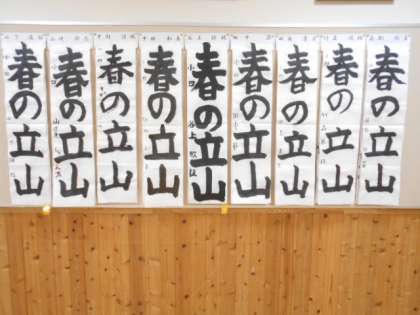 春の立山
春の立山
春の立山
春の立山
春の立山
春の立山
春の立山
春の立山
春の立山